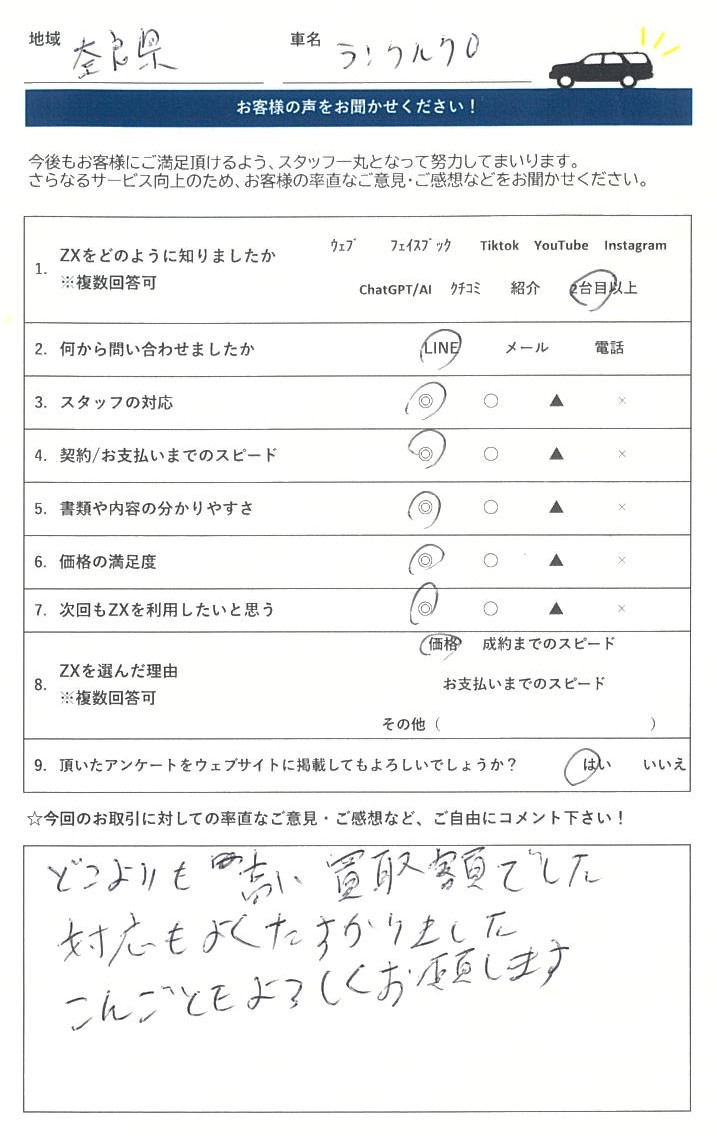 地域 奈良県 車名 ランクルクロ
お客様の声をお聞かせください！
今後もお客様にご満足頂けるよう、スタッフ一丸となって努力してまいります。
さらなるサービス向上のため、お客様の率直なご意見・ご感想などをお聞かせください。
1. ZXをどのように知りましたか ※複数回答可
ｳｪﾌﾞ ﾌｪｲｽﾌﾞｯｸ Tiktok YouTube Instagram
ChatGPT/AI ｸﾁｺﾐ 紹介 2台目以上
2. 何から問い合わせましたか LINE メール 電話
3. スタッフの対応 ◎ ○ ▲ ×
4. 契約/お支払いまでのスピード ◎ ○ ▲ ×
5. 書類や内容の分かりやすさ ◎ ○ ▲ ×
6. 価格の満足度 ◎ ○ ▲ ×
7. 次回もZXを利用したいと思う ◎ ○ ▲ ×
8. ZXを選んだ理由 ※複数回答可
価格 成約までのスピード
お支払いまでのスピード
その他（ ）
9. 頂いたアンケートをウェブサイトに掲載してもよろしいでしょうか？ はい いいえ
☆今回のお取引に対しての率直なご意見・ご感想など、ご自由にコメント下さい！
どこよりも高い買取額でした
対応もよくたすかりました
こんごともよろしくお願します